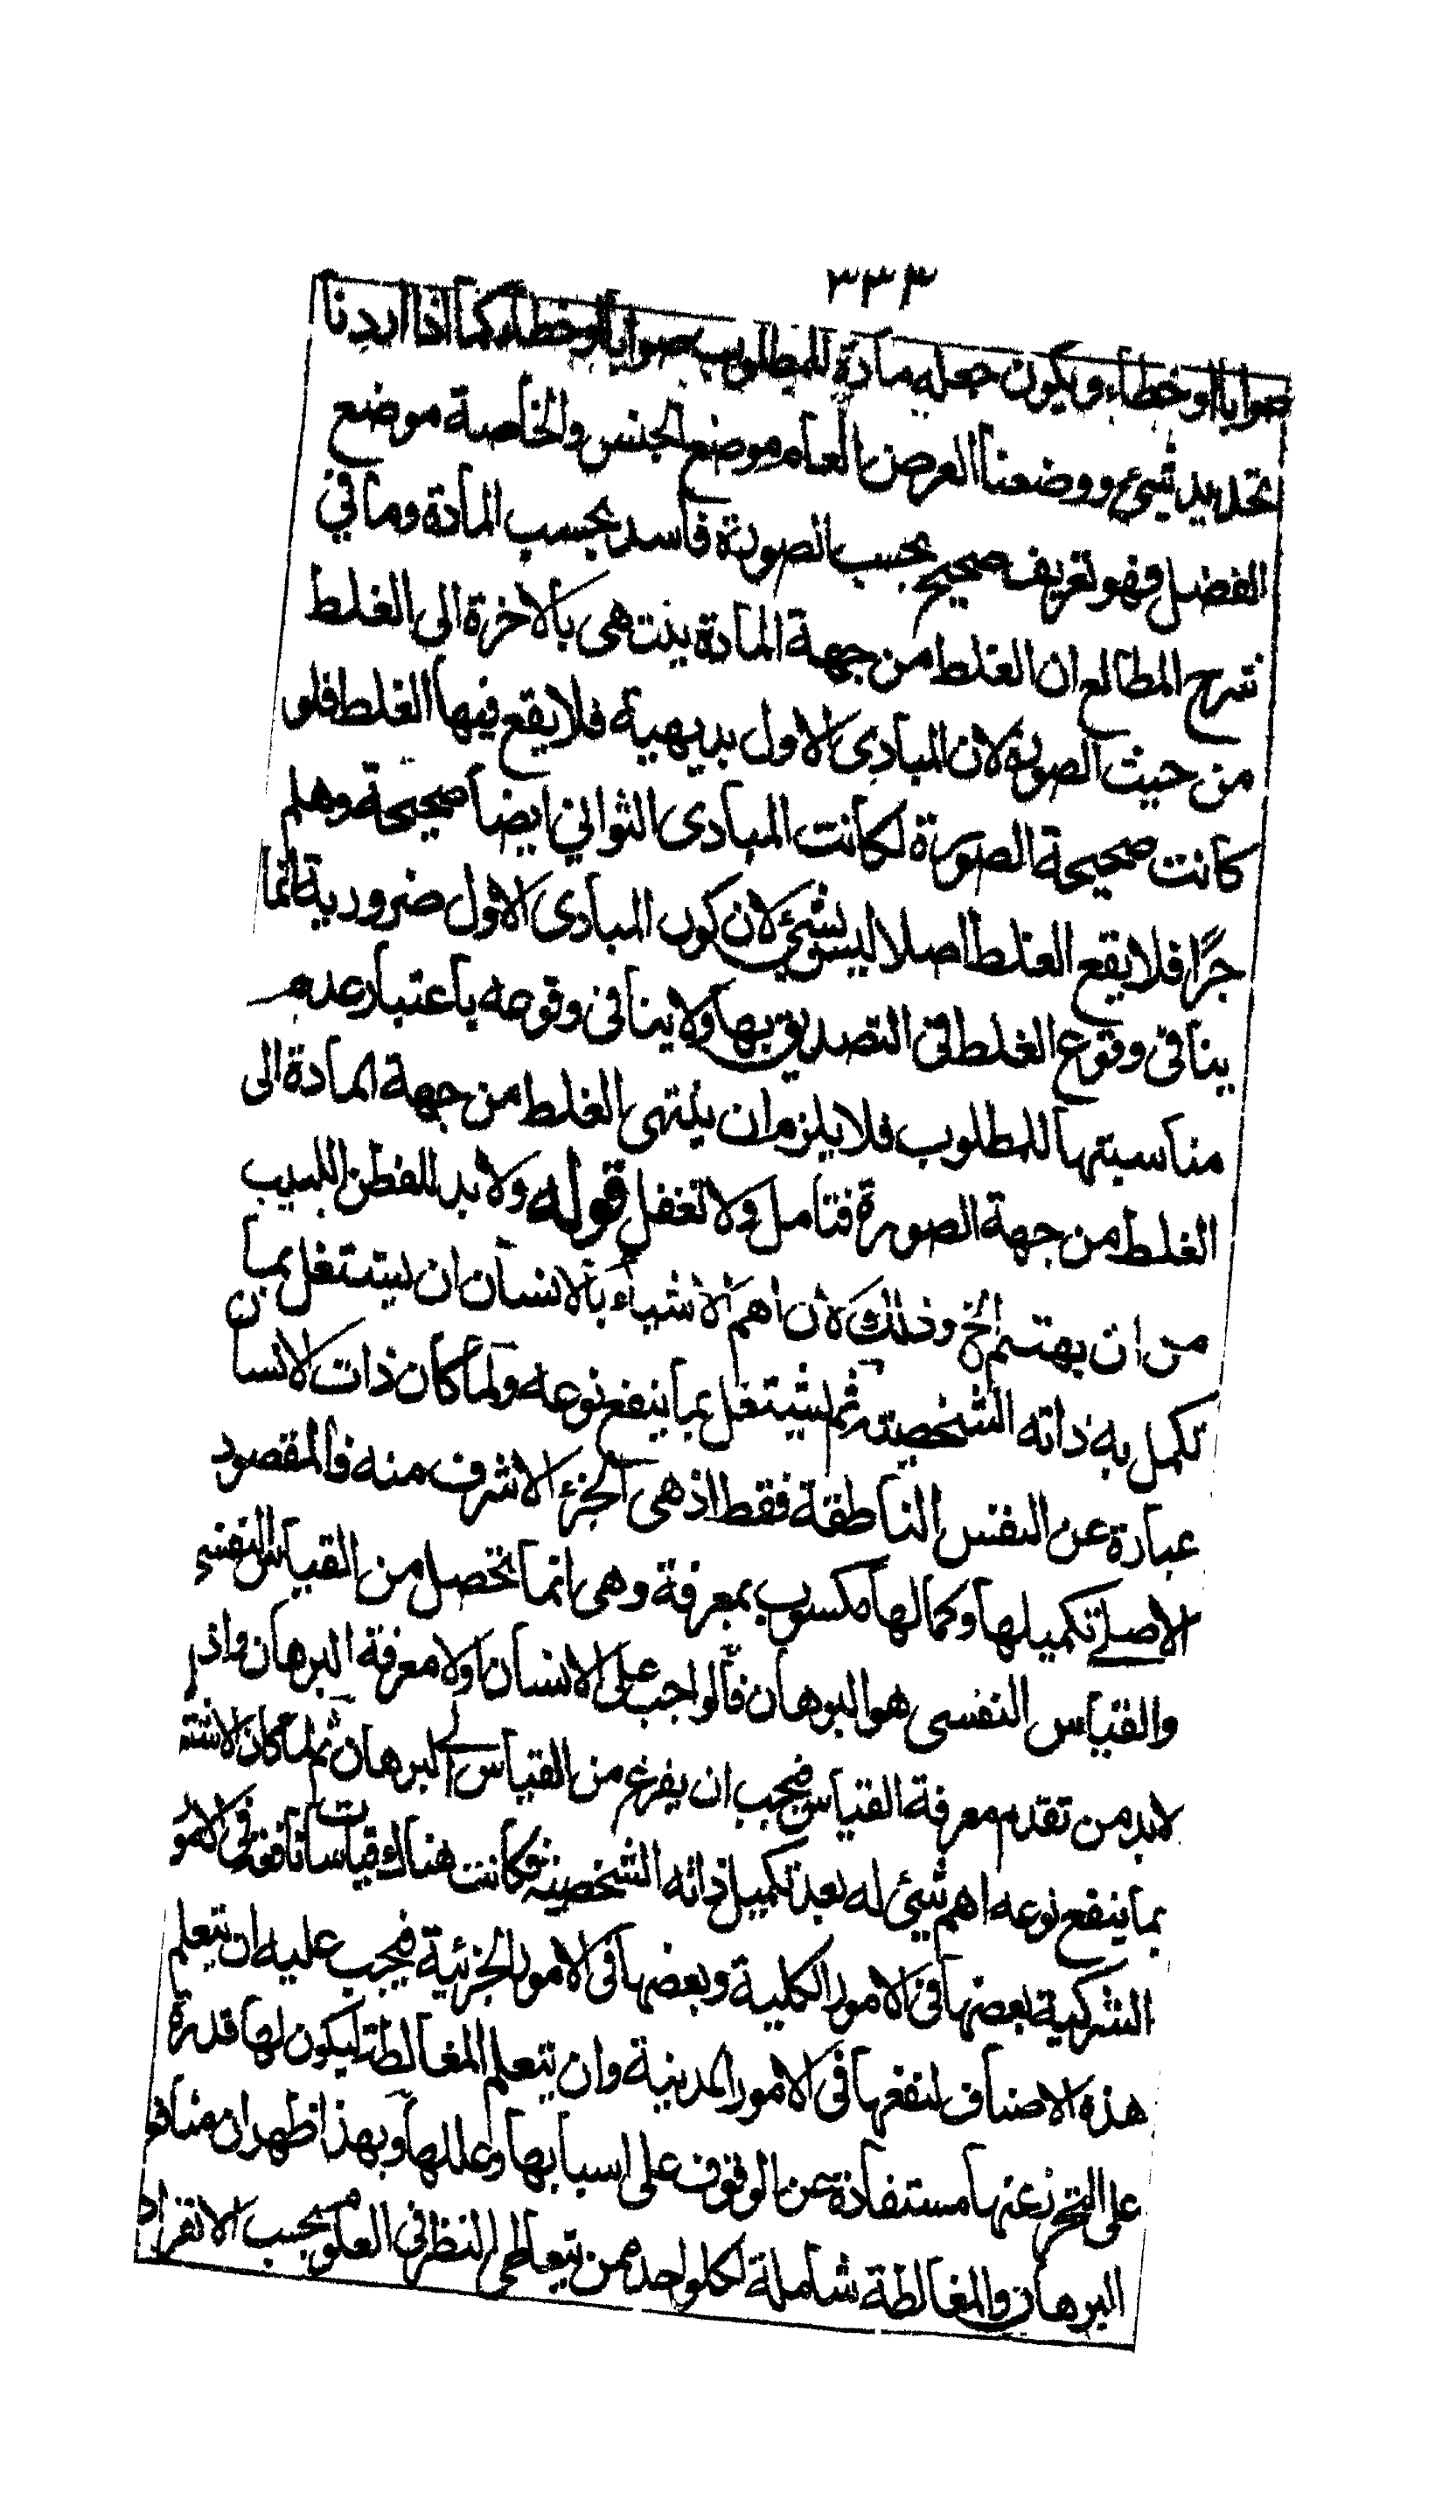 ٣٣٣
صوابا او خطاء ويكون جعله مادة للمطلوب صوابا او خطاء كما اذا اردنا
تحديد شيئ ووضعنا العرض العام موضع الجنس والخاصة موضع
الفصل فهو تعريف صحيح بحسب الصورة فاسد بحسب المادة وما في
شرح المطالع ان الغلط من جهة المادة ينتهى بالاخرة الى الغلط
من حيث الصورة لان المبادى الاول بديهية فلا يقع فيها الغلط فلو
كانت صحيحة الصورة لكانت المبادى الثوانى ايضا صحيحة وهلم
جرًا فلا يقع الغلط اصلا ليس بشيئ لان كون المبادى الاول ضرورية انما
ينافى وقوع الغلط فى التصديق بها ولا ينافى وقوعه باعتبار عدم
مناسبتها للمطلوب فلا يلزم ان ينتهى الغلط من جهة المادة الى
الغلط من جهة الصورة فتامل ولا تغفل قوله ولا بد للفطن اللبيب
من ان يهتم الخ وذلك لان اهم الاشياء بالانسان ان يشتغل بما
تكمل به ذاته الشخصية ثم يشتغل بما ينفع نوعه ولما كان ذات الانسان
عبارة عن النفس الناطقة فقط اذ هى الجزء الاشرف منه فالمقصود
الاصلے تكميلها وكمالها مكسوب بمعرفة وهى انما تحصل من القياس النفسے
والقياس النفسى هو البرهان فالواجب على الانسان اولا معرفة البرهان واذ
لابد من تقدم معرفة القياس فيجب ان يفرغ من القياس الے البرهان ثم لما كان الاشتغ
بما ينفع نوعه اهم شيئ له بعد تكميل ذاته الشخصية وكانت هناك قياسات نافعة فى الامور
الشركية بعضها فى الامور الكلية وبعضها فى الامور الجزئية فيجب عليه ان يتعلم
هذه الاصناف لنفعها فى الامور المدنية وان يتعلم المغالطة ليكون لها قدرة
على التحرز عنها مستفادة عن الوقوف على اسبابها وعللها وبهذا ظهر ان منافع
البرهان والمغالطة شاملة لكل واحد ممن يتعاطى النظر فى العلوم بحسب الانفراد